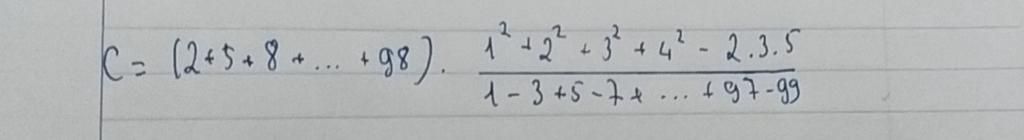 C = (2+5+8+...+98). \frac{1^2+2^2+3^2+4^2-2.3.5}{1-3+5-7+...+97-99}